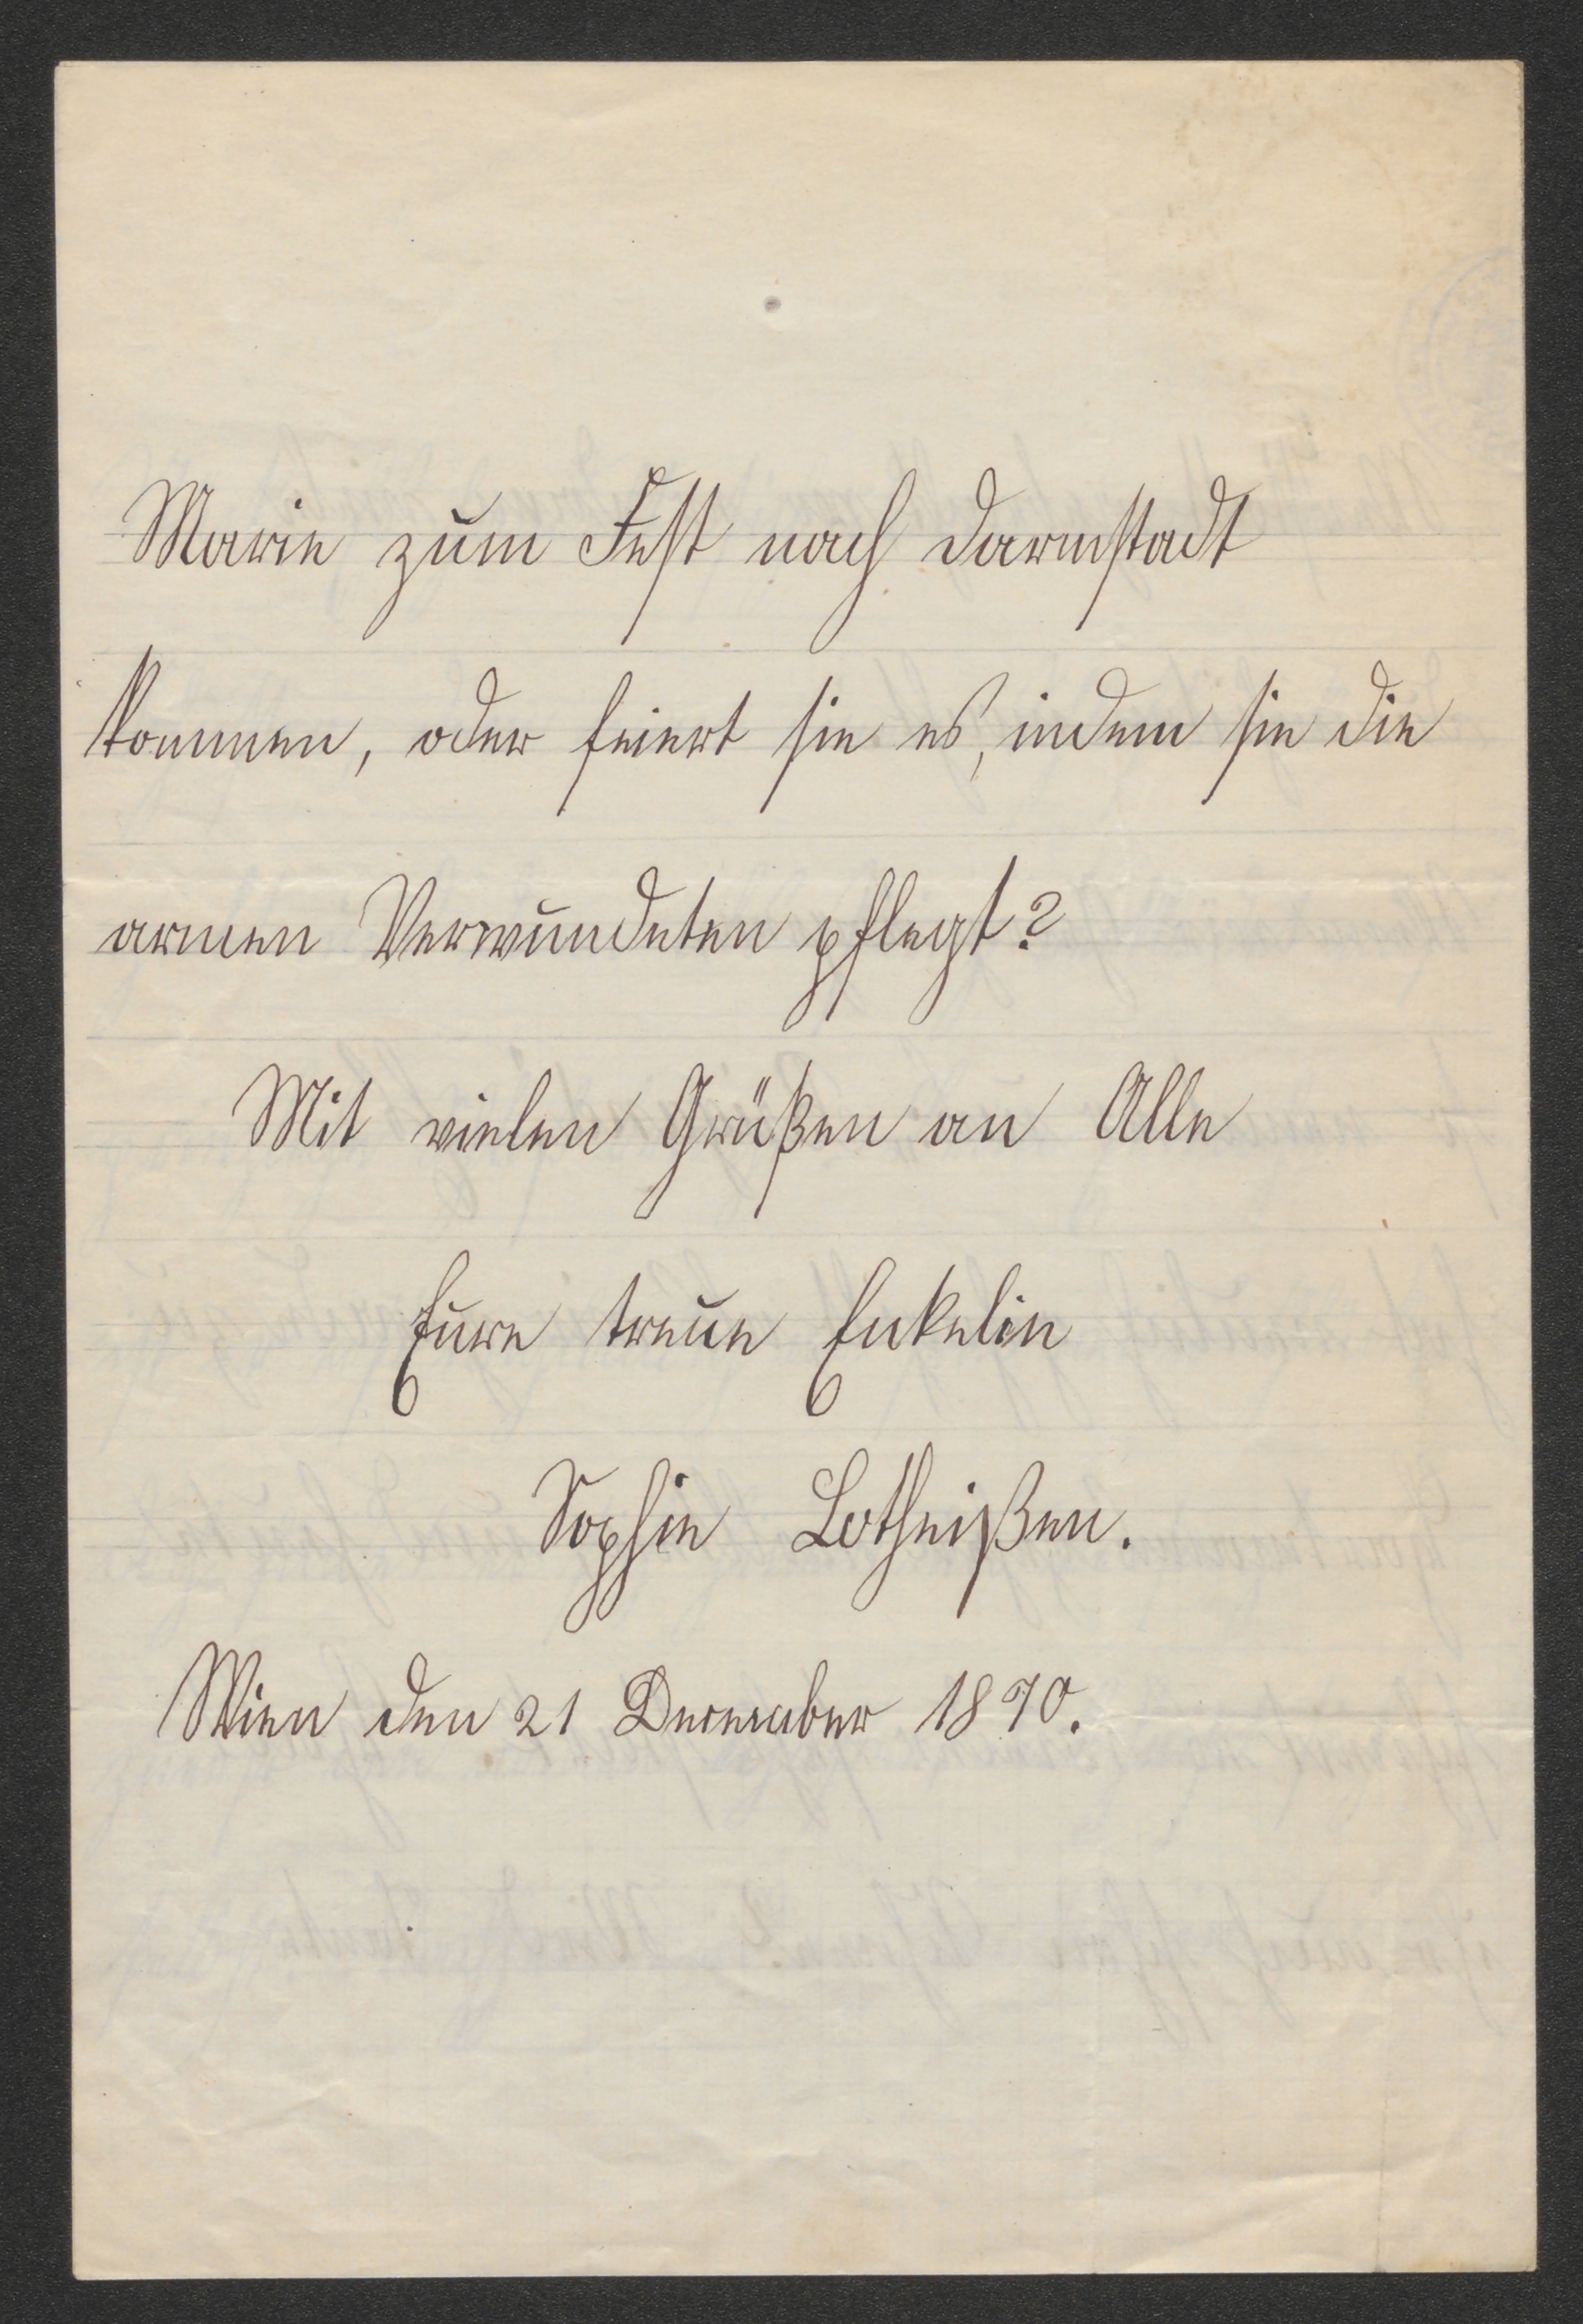 Marie zum Fest nach Darmstadt
kommen, oder feiert sie es, indem sie die
armen Verwundeten pflegt?
Mit vielen Grüßen an Alle
Eure treue Enkelin
Sophie Lotheißen.
Wien den 21 December 1870.